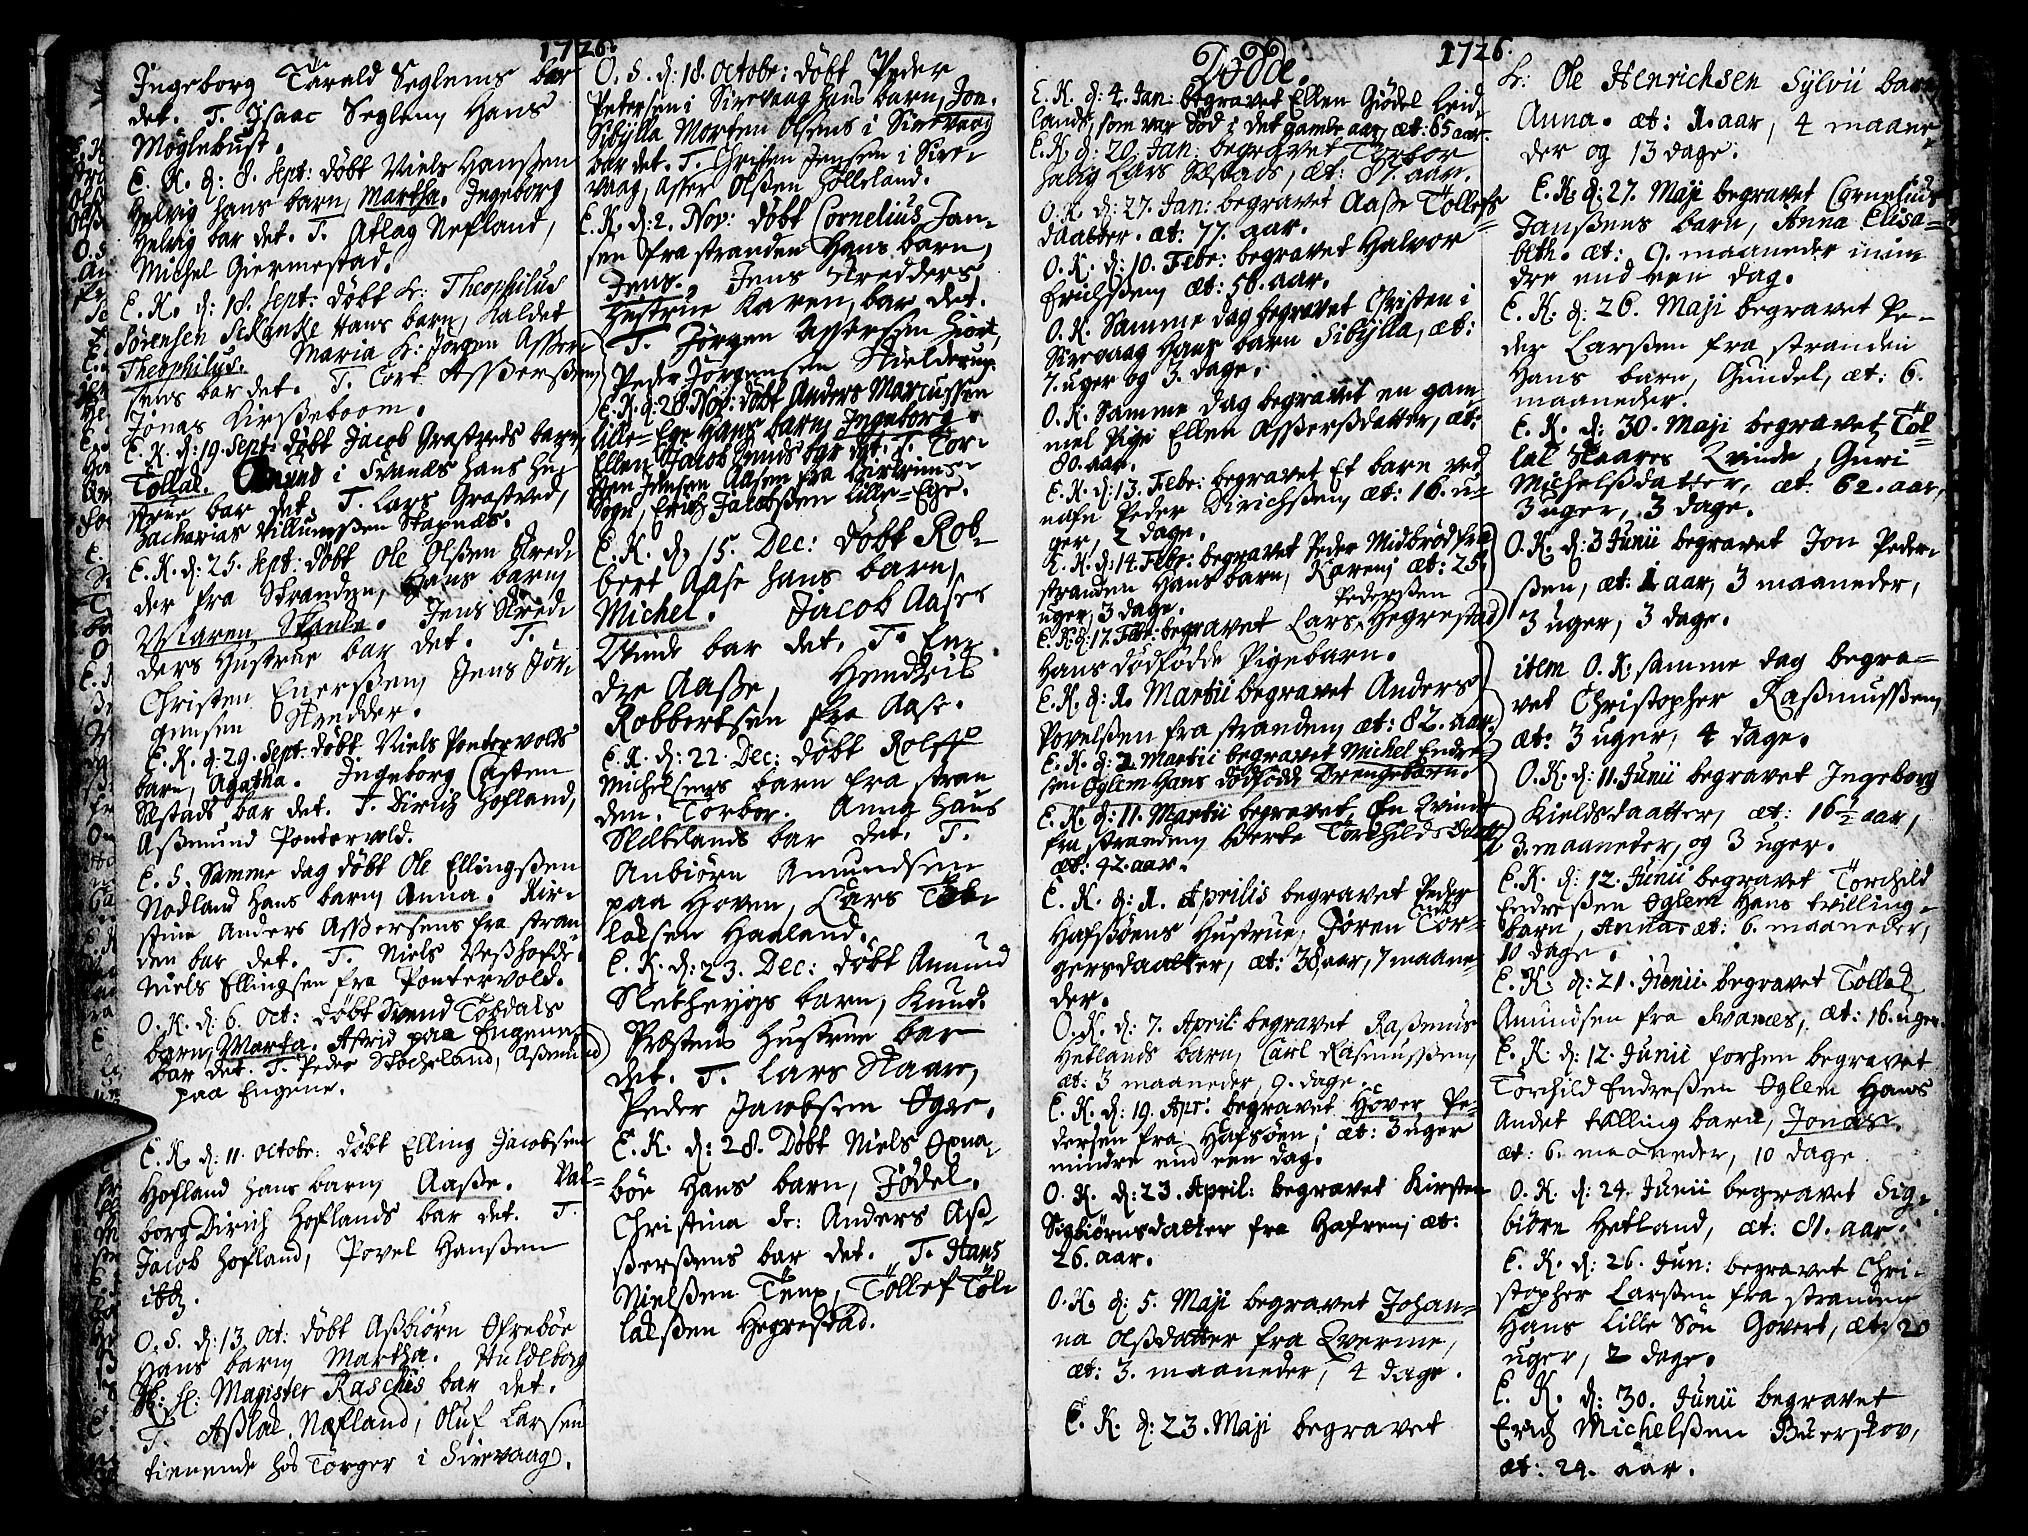 1726.
Ingeborg Tarald Seglems bar
det. T. Isaac Seglem, Hans
Möglebust.
E. K. d: 8. Sept: döbt Niels Hanssen
Helvig hans barn, Martha. Ingeborg
Helvig bar det. T. Atlag Nefland,
Michel Giermestad.
E. K. d: 18. Sept: döbt Hr: Theophilus
Sörensen Schanke Hans barn, kaldet
Theophilus. Maria Hr: Jörgen Asser-
sens bar det. T. Cort Asserssen,
Jonas Kirsseboom.
E. K. d: 19. Sept: döbt Jacob Grastveds barn,
Tollal. Amund i Svanes hans Hu-
strue bar det. T. Lars Grastved,
Zacharias Villumssen Stapnes.
E. K. d: 25. Sept: döbt Ole Olssen Stred-
der fra Stranden, Hans barn,
Maren, Skanke. Jens Stred-
ders Hustrue bar det. T.
Christen Enerssen, Jens Jör-
gensen Stredder.
E. K. d: 29. Sept: döbt Niels Pontervolds
barn, Agatha. Ingeborg Casten
Sæstads bar det. T. Dirich Hofland,
Assmund Pontervold.
E. S. Samme dag döbt Ole Ellingssen
Nodland hans barn, Anna. Kir-
stine Anders Assersens fra stran-
den bar det. T. Niels
Niels Ellingsen fra Pontervold.
O. K. d: 6. Oct: döbt Svend Töhdals
barn, Marta. Astrid paa Eugene
bar det. T. Peder Stocheland, Assmund
paa Eugene.
E. K. d: 11. Octobr: döbt Elling Jacobsen
Hofland hans barn, Aasse. Val-
borg Dirich Hoflands bar det. T.
Jacob Hofland, Povel Hanssen
ibid.
O. S. d: 13. Oct: döbt Assbiörn Ofreböe
Hans barn, Martha. Huldeborg
Sl: Magister Raschis bar det.
T. Asslac Nafland, Oluf Larsen
tienende hos Torger i Sirevaag.
O. S. d: 18. Octobr: döbt Peder
Petersen i Sirevaag hans barn, Jon.
Sibylla Morten Olsens i Sirevaag
bar det. T. Christen Jensen i Sire-
vaag, Asser Olssen Hölleland.
E. K. d: 2. Nov: döbt Cornelius Jan-
sen fra stranden Hans barn,
Jens. Jens Stredders
Hustrue Karen, bar det.
T. Jörgen Assersen Hiort,
Peder Jörgensen Skielderup.
E. K. d: 28. Nov: döbt Anders Marcussen
Lille-Ege Hans barn, Ingeborg.
Ellen Jacob bar det. T. Tor-
sten Jensen Aasen fra
Sogn, Erich Jacobssen Lille-Ege.
E. K. d. 15. Dec: döbt Rob-
bert Aase hans barn,
Michel. Jacob Aases
Qvinde bar det. T. En-
dre Aasse, Hendrik
Robbertsen fra Aase.
E. K. d: 22. Dec: döbt Rolf
Michelsens barn fra stran
den. Torbor. Anna Hans
Sletelands bar det. T.
Anbiörn Amundsen
paa Hoven, Lars Töl-
lalsen Haaland.
E. K. d: 23. Dec: döbt Amund
Sletheyis barn, Knud.
Præstens Hustrue bar
det. T. Lars Staare,
Peder Jacobsen Ogne.
E. K. d: 28. Döbt Niels Oxna-
böe Hans barn, Jödel.
Christina Hr: Anders Ass-
serssens bar det. T. Hans
Nielssen Tenx, Töllef Töl-
lalssen Hegrestad.
Döde.
1726.
E. K. d: 4. Jan: begravet Ellen Giödel Leid-
lands, som var död i det gamle aar, æt: 65 aar.
E. K. d: 20. Jan: begravet Torbor
salig Lars Sæstads, æt: 87. aar.
O. K. d: 27. Jan: begravet Aasse Töllefs
daatter. æt: 77. aar.
O. K. d: 10. Febr: begravet Halvor
Erichssen, æt: 50. aar.
O. K. Samme dag begravet Christen i
Sirevaag Hans barn Sibylla, æt:
7. uger og 3. dage.
O. K. Samme dag begravet en gam-
mel Pige Ellen Asserssdatter, æt:
80. aar.
E. K. d: 13. Febr: begravet Et barn ved
nafn Peder Dirichssen, æt: 16. u-
ger, 2 dage.
E. K. d: 14. Febr: begravet Peder Midbröd fra
stranden Hans barn, Karen, æt: 25.
uger, 3 dage.
Pederssen
E. K. d: 17. Febr: begravet Lars Hegrestad
Hans dödfödde Pigebarn.
E. K. d: 1. Martii begravet Anders
Povelssen fra stranden, æt: 82. aar.
E. K. d: 2. Martii begravet Michel Endre-
sen Oglem Hans dödfödde Drengebarn.
E. K. d: 11. Martii begravet En Qvinde
fra stranden, Berte Torchilds daatter
æt: 42. aar.
E. K. d: 1. Aprilis begravet Peder
Hafssöens Hustrue, Jören Tor-
gersdaatter, æt: 38 aar, 7 maane-
der.
O. K. d: 7. April: begravet Rasmus
Hetlands barn, Carl Rasmussen,
æt: 3 maaneder, 9. dage.
E. K. d: 19. Apr: begravet Höver Pe-
dersen fra Hafsöen, æt: 3 uger
mindre end een dag.
O. K. d: 23. April: begravet Kirsten
Sigbiörnsdatter fra Hafren, æt:
26. aar.
O. K. d: 5. Maji begravet Johan-
na Olssdatter fra Qverme,
æt: 3. maaneder, 4 dage.
E. K. d: 23. Maji begravet
Hr: Ole Henrichsen Sylvii barn,
Anna. æt: 1. aar, 4 maane-
der og 13 dage.
E. K. d: 27. Maji begravet Cornelius
Janssens barn, Anna Elisa-
beth. æt: 9. maaneder min-
dre end een dag.
E. K. d: 26. Maji begravet Pe-
der Larssen fra stranden
Hans barn, Gundel, æt: 6.
maaneder.
E. K. d: 30. Maji begravet Töl-
lal Staares Qvinde, Guri
Michelssdatter, æt: 62. aar,
3 uger, 3 dage.
O. K. d: 3 Junii begravet Jon Peder-
ssen, æt: 1 aar, 3 maaneder,
3 uger, 3 dage.
item O. K. samme dag begra-
vet Christopher Rassmussen,
æt: 3 uger, 4 dage.
O. K. d: 11. Junii begravet Ingeborg
Kieldsdaatter, æt: 16 1/2 aar,
3. maaneder, og 3 uger.
E. K. d: 12. Junii begravet Torchild
Endressen Oglem Hans tvilling-
barn, Anna. æt: 6. maaneder,
10 dage.
E. K. d: 21. Junii begravet Töllal
Amundsen fra Svanes, æt: 16. uger.
E. K. d: 12. Junii forhen begravet
Torchild Endressen Oglem Hans
andet tvilling barn, Jonas.
æt: 6. maaneder, 10 dage.
O. K. d: 24. Junii begravet Sig-
biörn Hetland, æt: 81. aar.
E. K. d: 26. Jun: begravet Chri-
stopher Larssen fra stranden
Hans lille Sön Govert, æt: 20
uger, 2 dage.
E. K. d: 30. Junii begravet
Erich Michelssen Buerskov,
æt: 24. aar.